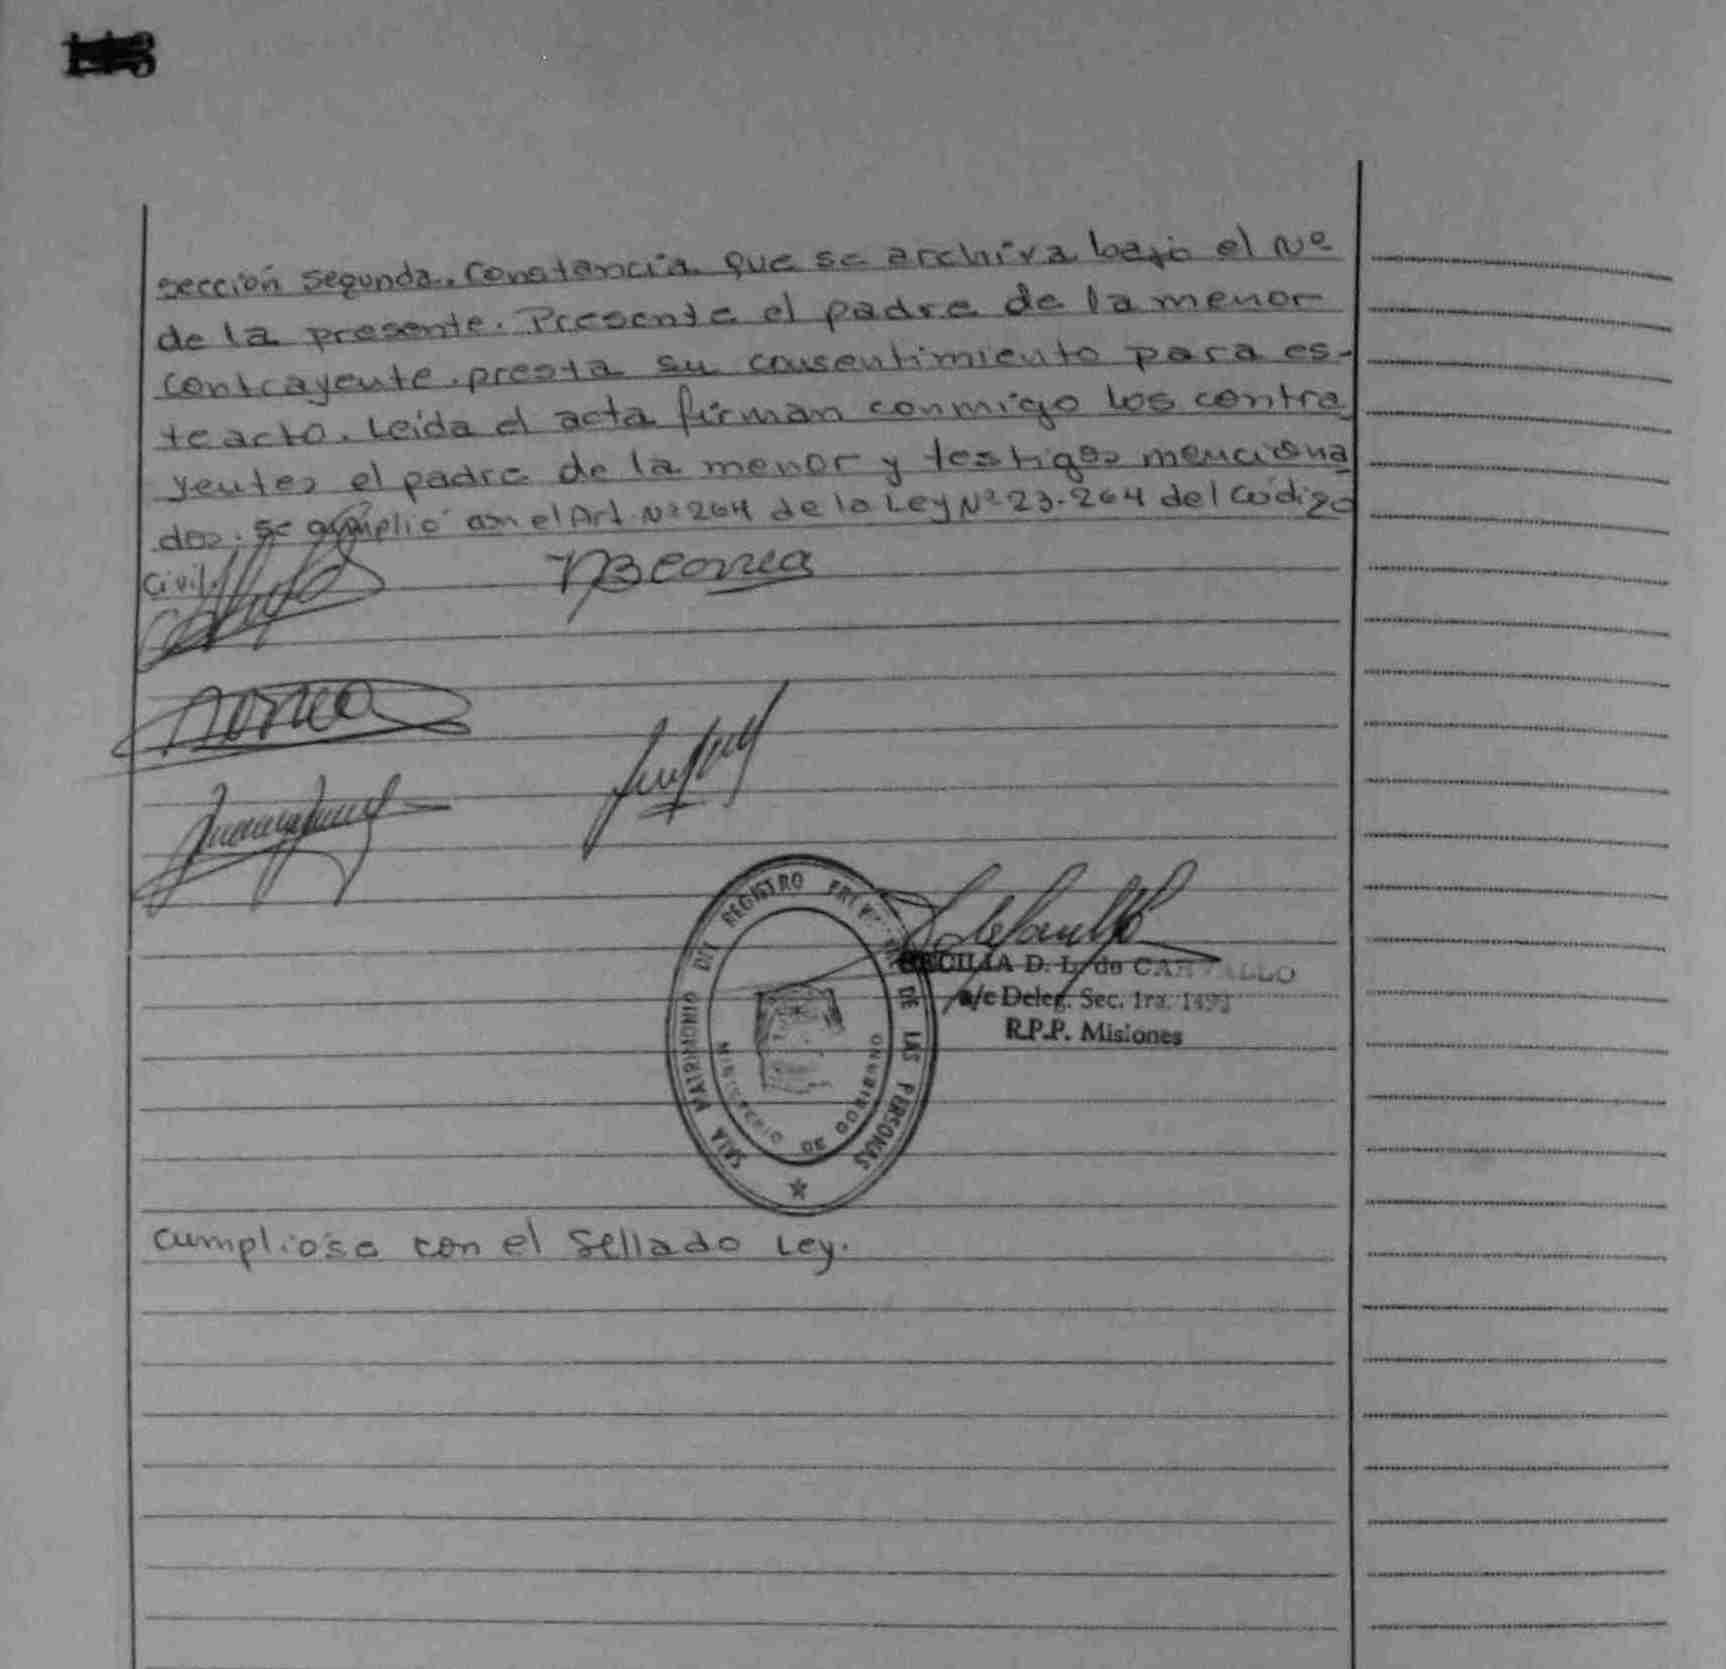 sección segunda. Constancia que se archiva bajo el Nº
de la presente. Presente el padre de la menor
contrayente. presta su consentimiento para es-
te acto. Leída el acta firman conmigo los contra
yentes el padre de la menor y testigos menciona
dos. Se cumplió con el Art. Nº 264 de la Ley Nº 23.264 del Código
Civil.
SALA MATRIMONIO DEL REGISTRO DE LAS PERSONAS
MINISTERIO DE GOBIERNO
CECILIA D. L. de CARVALLO
a/c Deleg. Sec. 1ra.
R.P.P. Misiones
Cumpliose con el Sellado Ley.